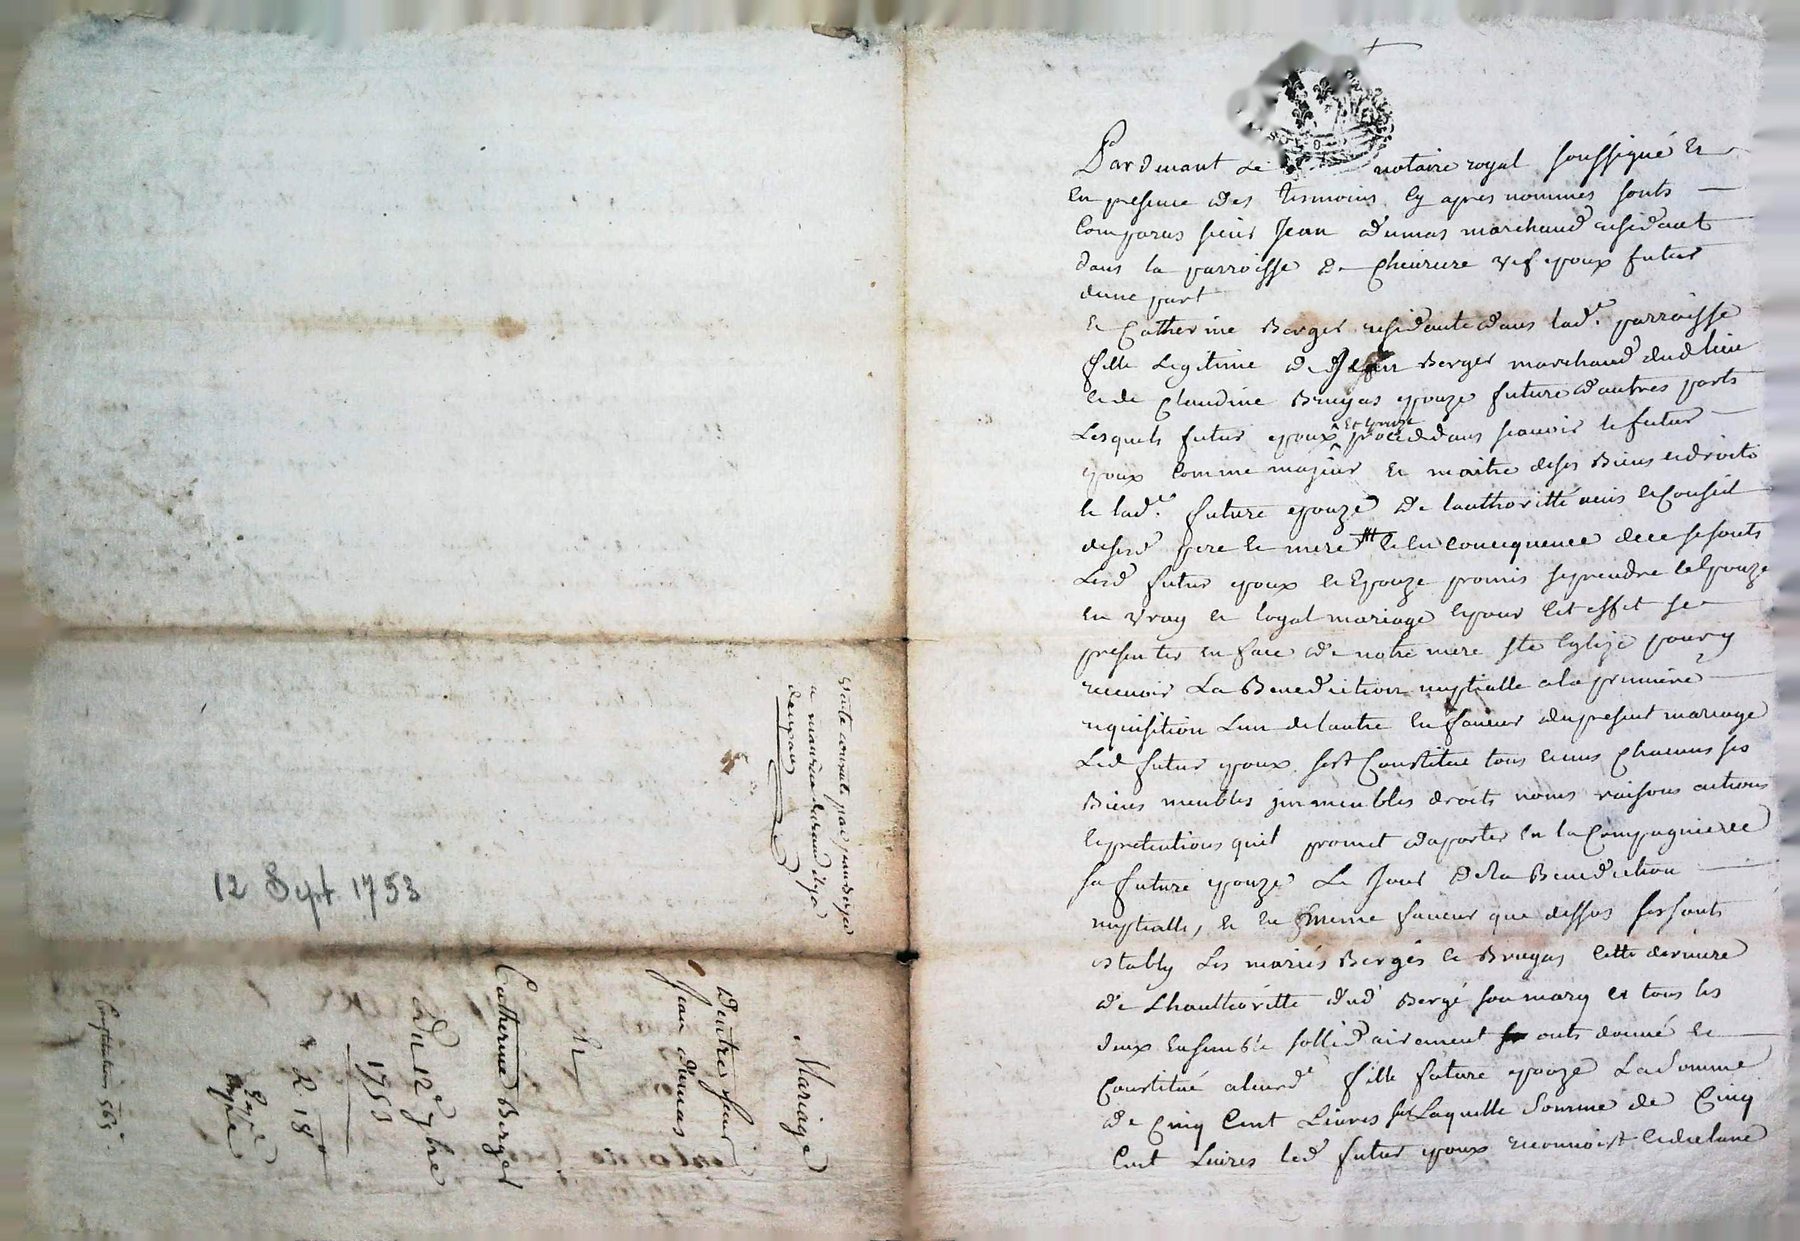 Pardevant Le notaire royal soussigné Et
En presence des tesmoins Cy apres nommes sonts
Comparus sieur Jean dumas marchand residant
dans la parroisse de vef epoux futur
dune part
Et Catherine Berger residante dans lad.e parroisse
fille Legitime de Jean Berger marchand dud lieu
et de Claudine Bruyas epouze future dautres parts
Lesquels futur epoux Et epouze proceddans scauoir le futur
epoux Comme majeur Et maitre deses Biens et droits
Et lad.e future epouze de lauthoritté auis et Conseil
desesd pere et mere Et En consequence de ce se sonts
Lesd futur epoux et Epouze promis se prendre Et Epouze
En vray et loyal mariage Et pour Cet effet se
presenter en face de notre mere ste Eglize pour y
receuoir La Benediction nuptialle a la premiere
requisition Lun de lautre En faueur du present mariage
Led futur epoux sest Constitué tous et uns Chacuns ses
Biens meubles immeubles droits noms raisons actions
et pretentions quil promet daporter En la Compagnie de
sa future epouze Le Jour de la Benediction
nuptialle, et En meme faueur que dessus se sonts
establiy Les mariés Berger et Bruyas Cette derniere
de Lhauthoritte dud Bergé son mary et tous les
deux Ensemble sollidairement onts donné et
Constitué a leurd.e fille future epouze La Somme
de Cinq Cent Liures sur Laquelle Somme de Cinq
Cent Liures led futur epoux reconnoist et declare
Vente par jean
a maurice durand
12 Sept. 1753
Mariage
Dentre sieur
Jean Dumas
Et
Catherine Berger
Du 12e 7bre
1753
2. 18
Expé
Constitution 565